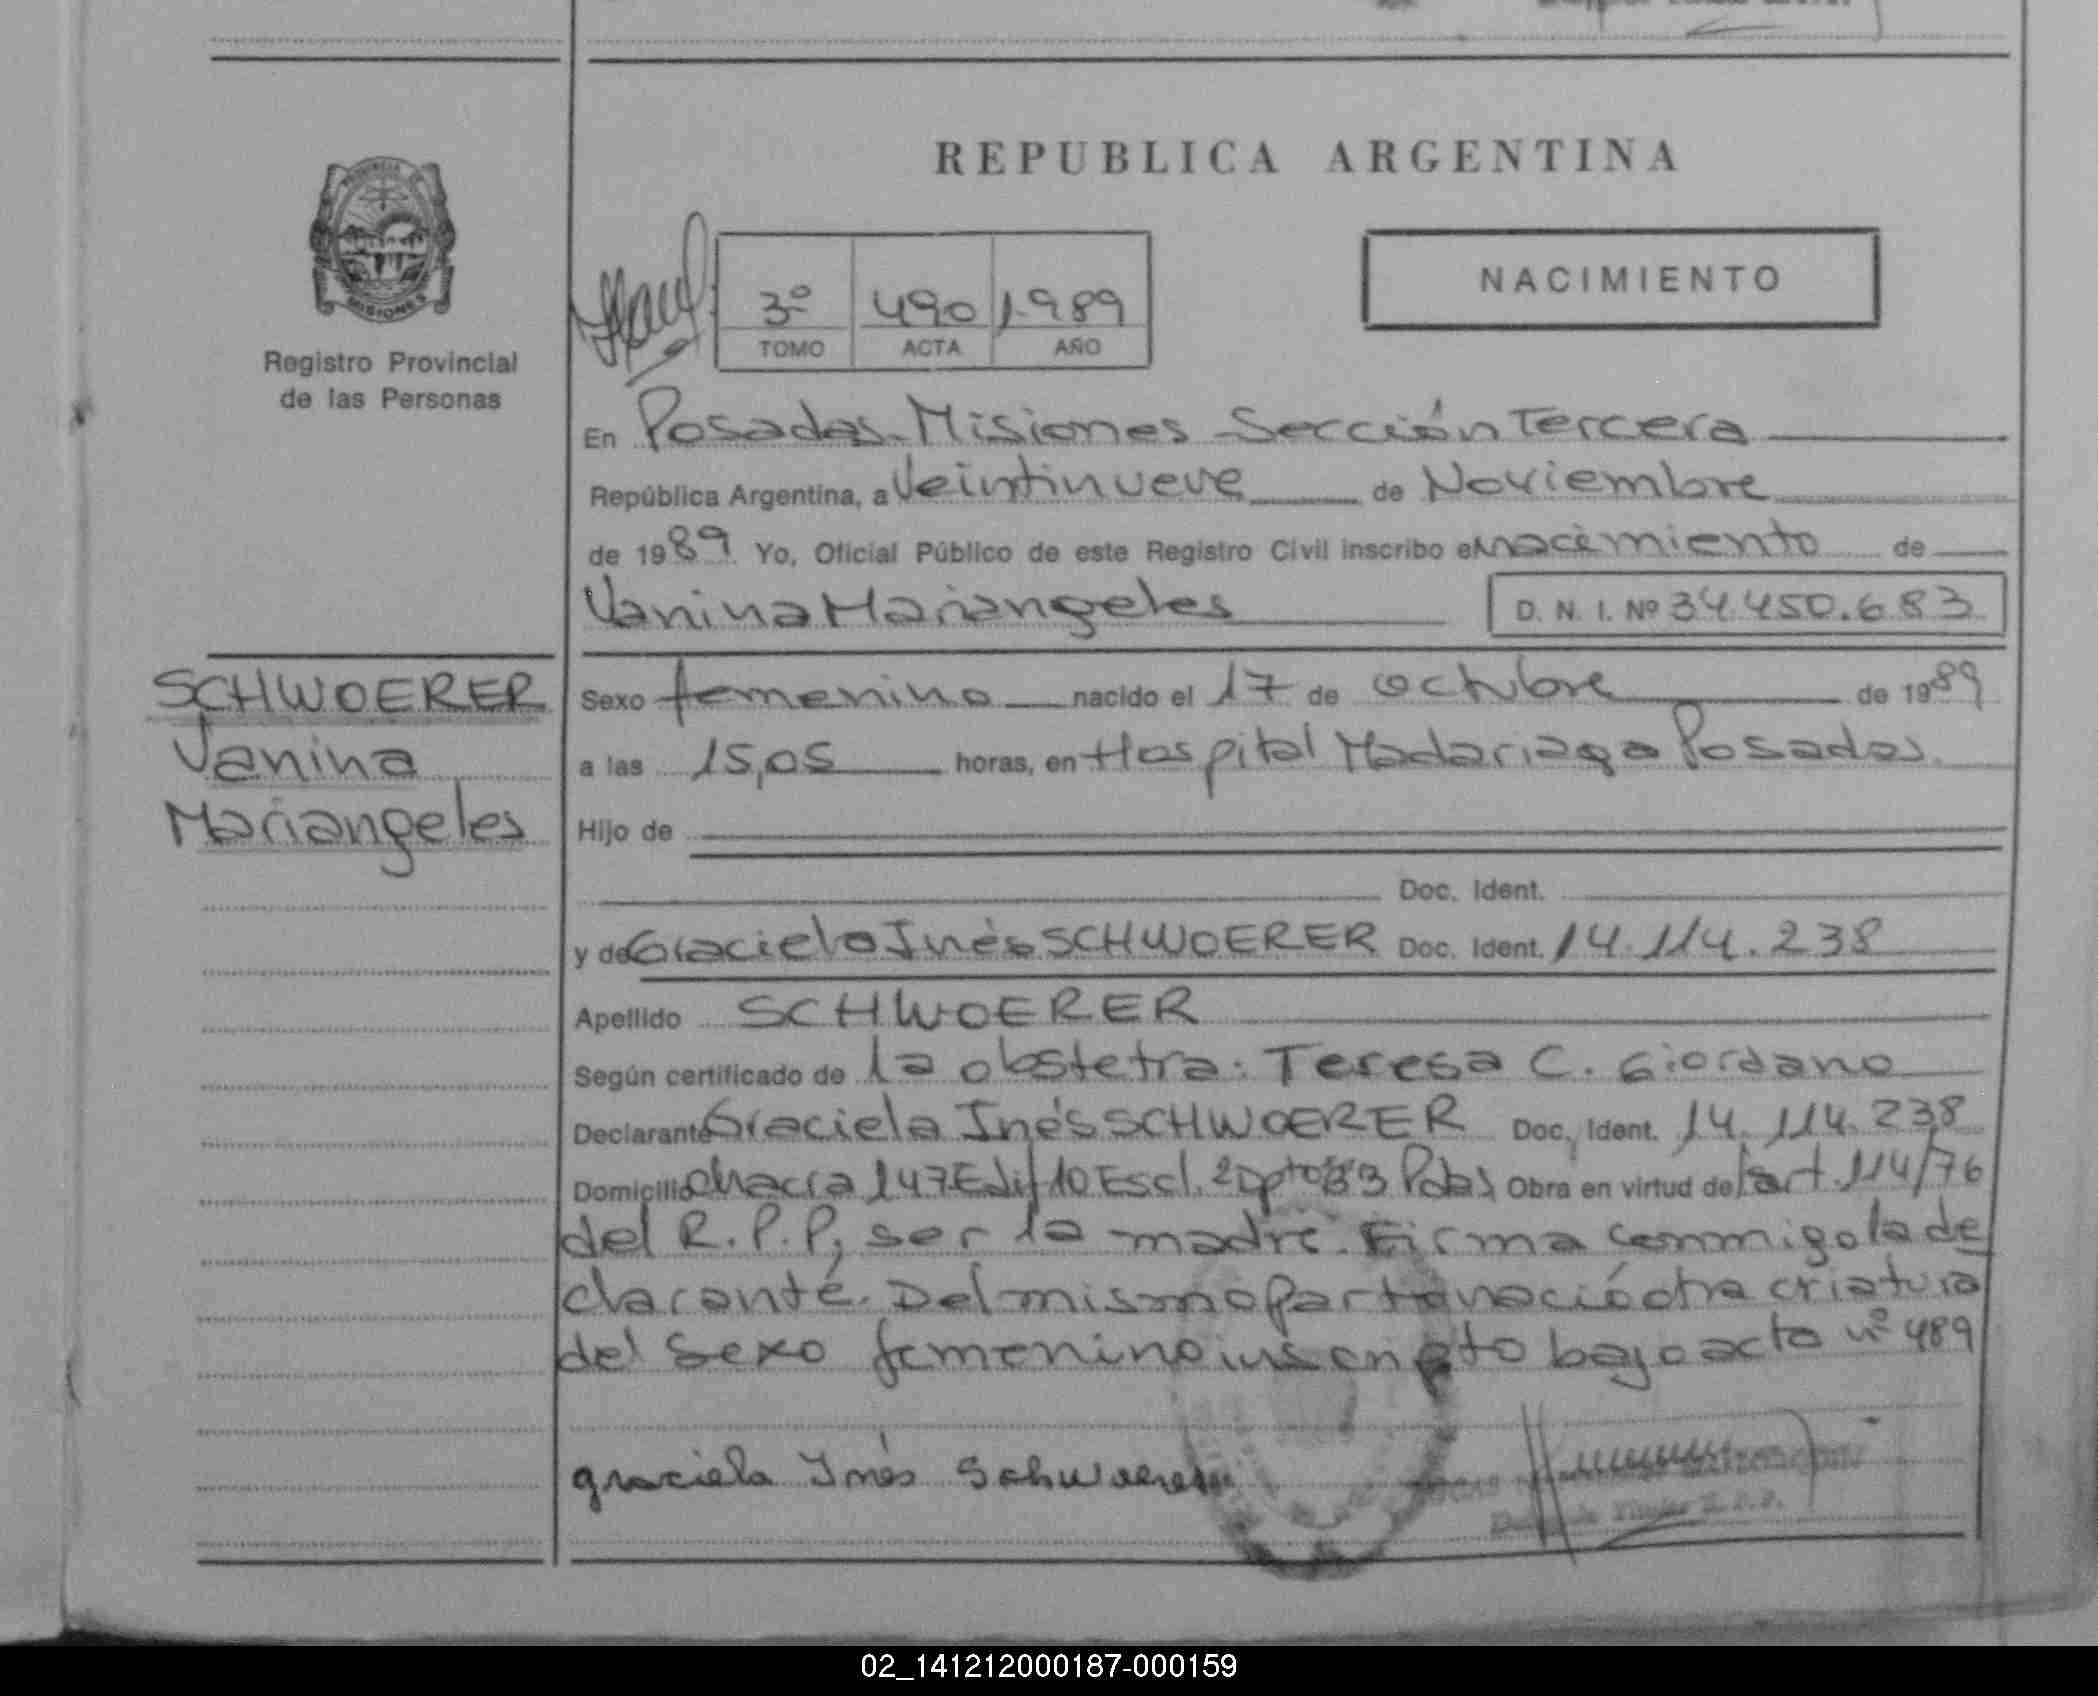 REPUBLICA ARGENTINA
PROVINCIA DE
MISIONES
Registro Provincial
de las Personas
NACIMIENTO
3º 490 1989
TOMO ACTA AÑO
En Posadas Misiones Sección Tercera
República Argentina, a Veintinueve de Noviembre
de 1989 Yo, Oficial Público de este Registro Civil inscribo el nacimiento de
Vanina Mariangeles D. N. I. Nº 34.450.683
SCHWOERER
Vanina
Mariangeles
Sexo femenino nacido el 17 de octubre de 1989
a las 15,05 horas, en Hospital Madariaga Posadas.
Hijo de
Doc. Ident.
y de Graciela Inés SCHWOERER Doc. Ident. 14.114.238
Apellido SCHWOERER
Según certificado de la obstetra: Teresa C. Giordano
Declarante Graciela Inés SCHWOERER Doc. Ident. 14.114.238
Domicilio chacra 147 Edif 10 Escl. 2 Dpto 33 Pdas Obra en virtud de art. 114/76
del R.P.P, ser la madre. Firma conmigo la de
clarante. Del mismo parto nació otra criatura
del sexo femenino inscripto bajo acta nº 489
graciela Inés Schwoerer
02_141212000187-000159